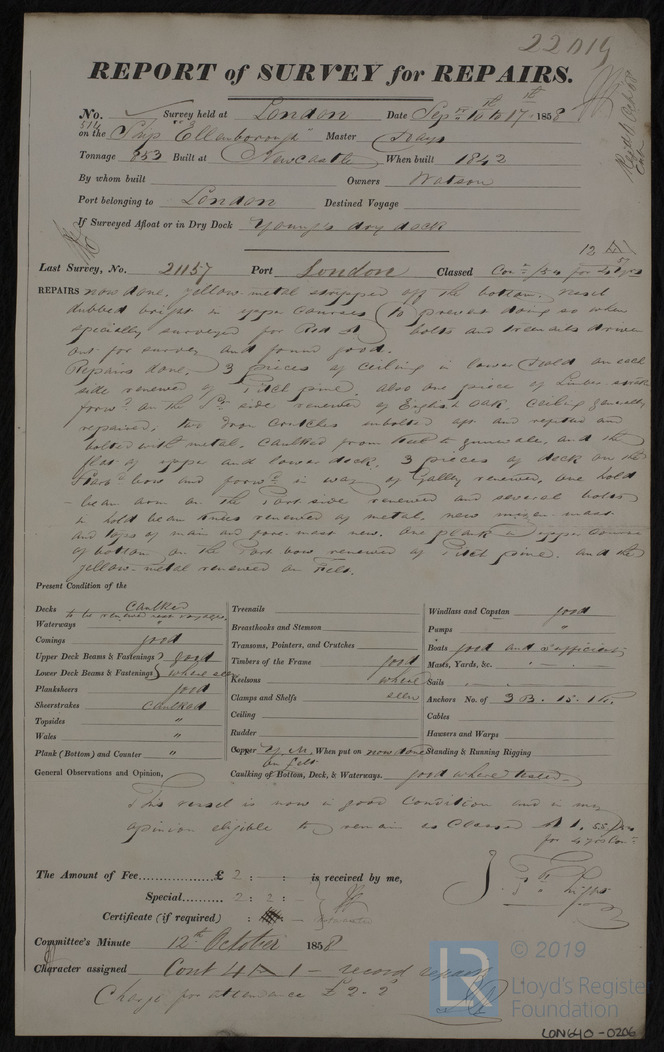 22019
REPORT of SURVEY for REPAIRS.
No. 514 Survey held at London Date Sepr 10th to 17th 1858
on the Ship "Ellenborough" Master
Tonnage 853 Built at Newcastle When built 1842
By whom built Owners Watson
Port belonging to London Destined Voyage
If Surveyed Afloat or in Dry Dock Young's dry dock
Last Survey, No. 21157 Port London Classed
REPAIRS now done, yellow metal stripped off the bottom. vessel
dubbed bright in upper courses (to prevent doing so when
specially surveyed for Red A) bolts and treenails driven
out for survey and found good.
Repairs done. 3 pieces of ceiling in lower hold on each
side renewed of Pitch pine, also one piece of Limber strake
forwd on the side renewed of English Oak, Ceiling generally
repaired, two Iron Crutches unbolted aft and refitted and
bolted with metal, caulked from keel to gunwale, and the
flat of upper and lower deck. 3 pieces of deck on the
Starbd bow and forwd in way of Galley renewed, one hold
beam arm on the Port side renewed and several bolts
in hold beam knees renewed of metal, new mizen mast
and tops of main and fore mast new. One plank in upper course
of bottom on the Port bow renewed of Pitch pine. and the
yellow metal renewed on Felt.
Present Condition of the
Decks caulked
to be renewed next voyage.
Waterways
Comings good
Upper Deck Beams & Fastenings } good
Lower Deck Beams & Fastenings } where seen
Planksheers good
Sheerstrakes caulked
Topsides "
Wales "
Plank (Bottom) and Counter "
Treenails
Breasthooks and Stemson
Transoms, Pointers, and Crutches
Timbers of the Frame good
Keelsons where
Clamps and Shelfs seen
Ceiling
Rudder
Copper Y.M. When put on now done
on felt
Caulking of Bottom, Deck, & Waterways. good where tested
Windlass and Capstan good
Pumps "
Boats good and sufficient
Masts, Yards, &c. "
Sails
Anchors No. of 3 B. 1S. 1K.
Cables
Hawsers and Warps
Standing & Running Rigging
General Observations and Opinion,
This vessel is now in good Condition and in my
opinion eligible to remain as Classed A 1.
for 4 yrs Cont
The Amount of Fee............... £ 2 : - : - is received by me,
Special......... 2 : 2 : -
Certificate (if required) :
Committee's Minute 12th October 1858
Character assigned Cont 4 A 1 - record repairs
Charge for attendance £2.2
© 2019
LR Lloyd's Register
Foundation
LON640-0206